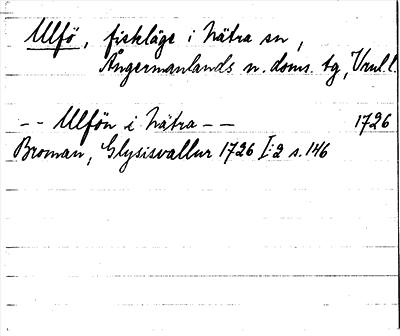 Ulfö, fiskläge i Nätra sn,
Ångermanlands n. doms. tg, Vnl.l.
-- Ulfön i Nätra -- 1726
Broman, Glysisvallur 1726 I:2 s. 146